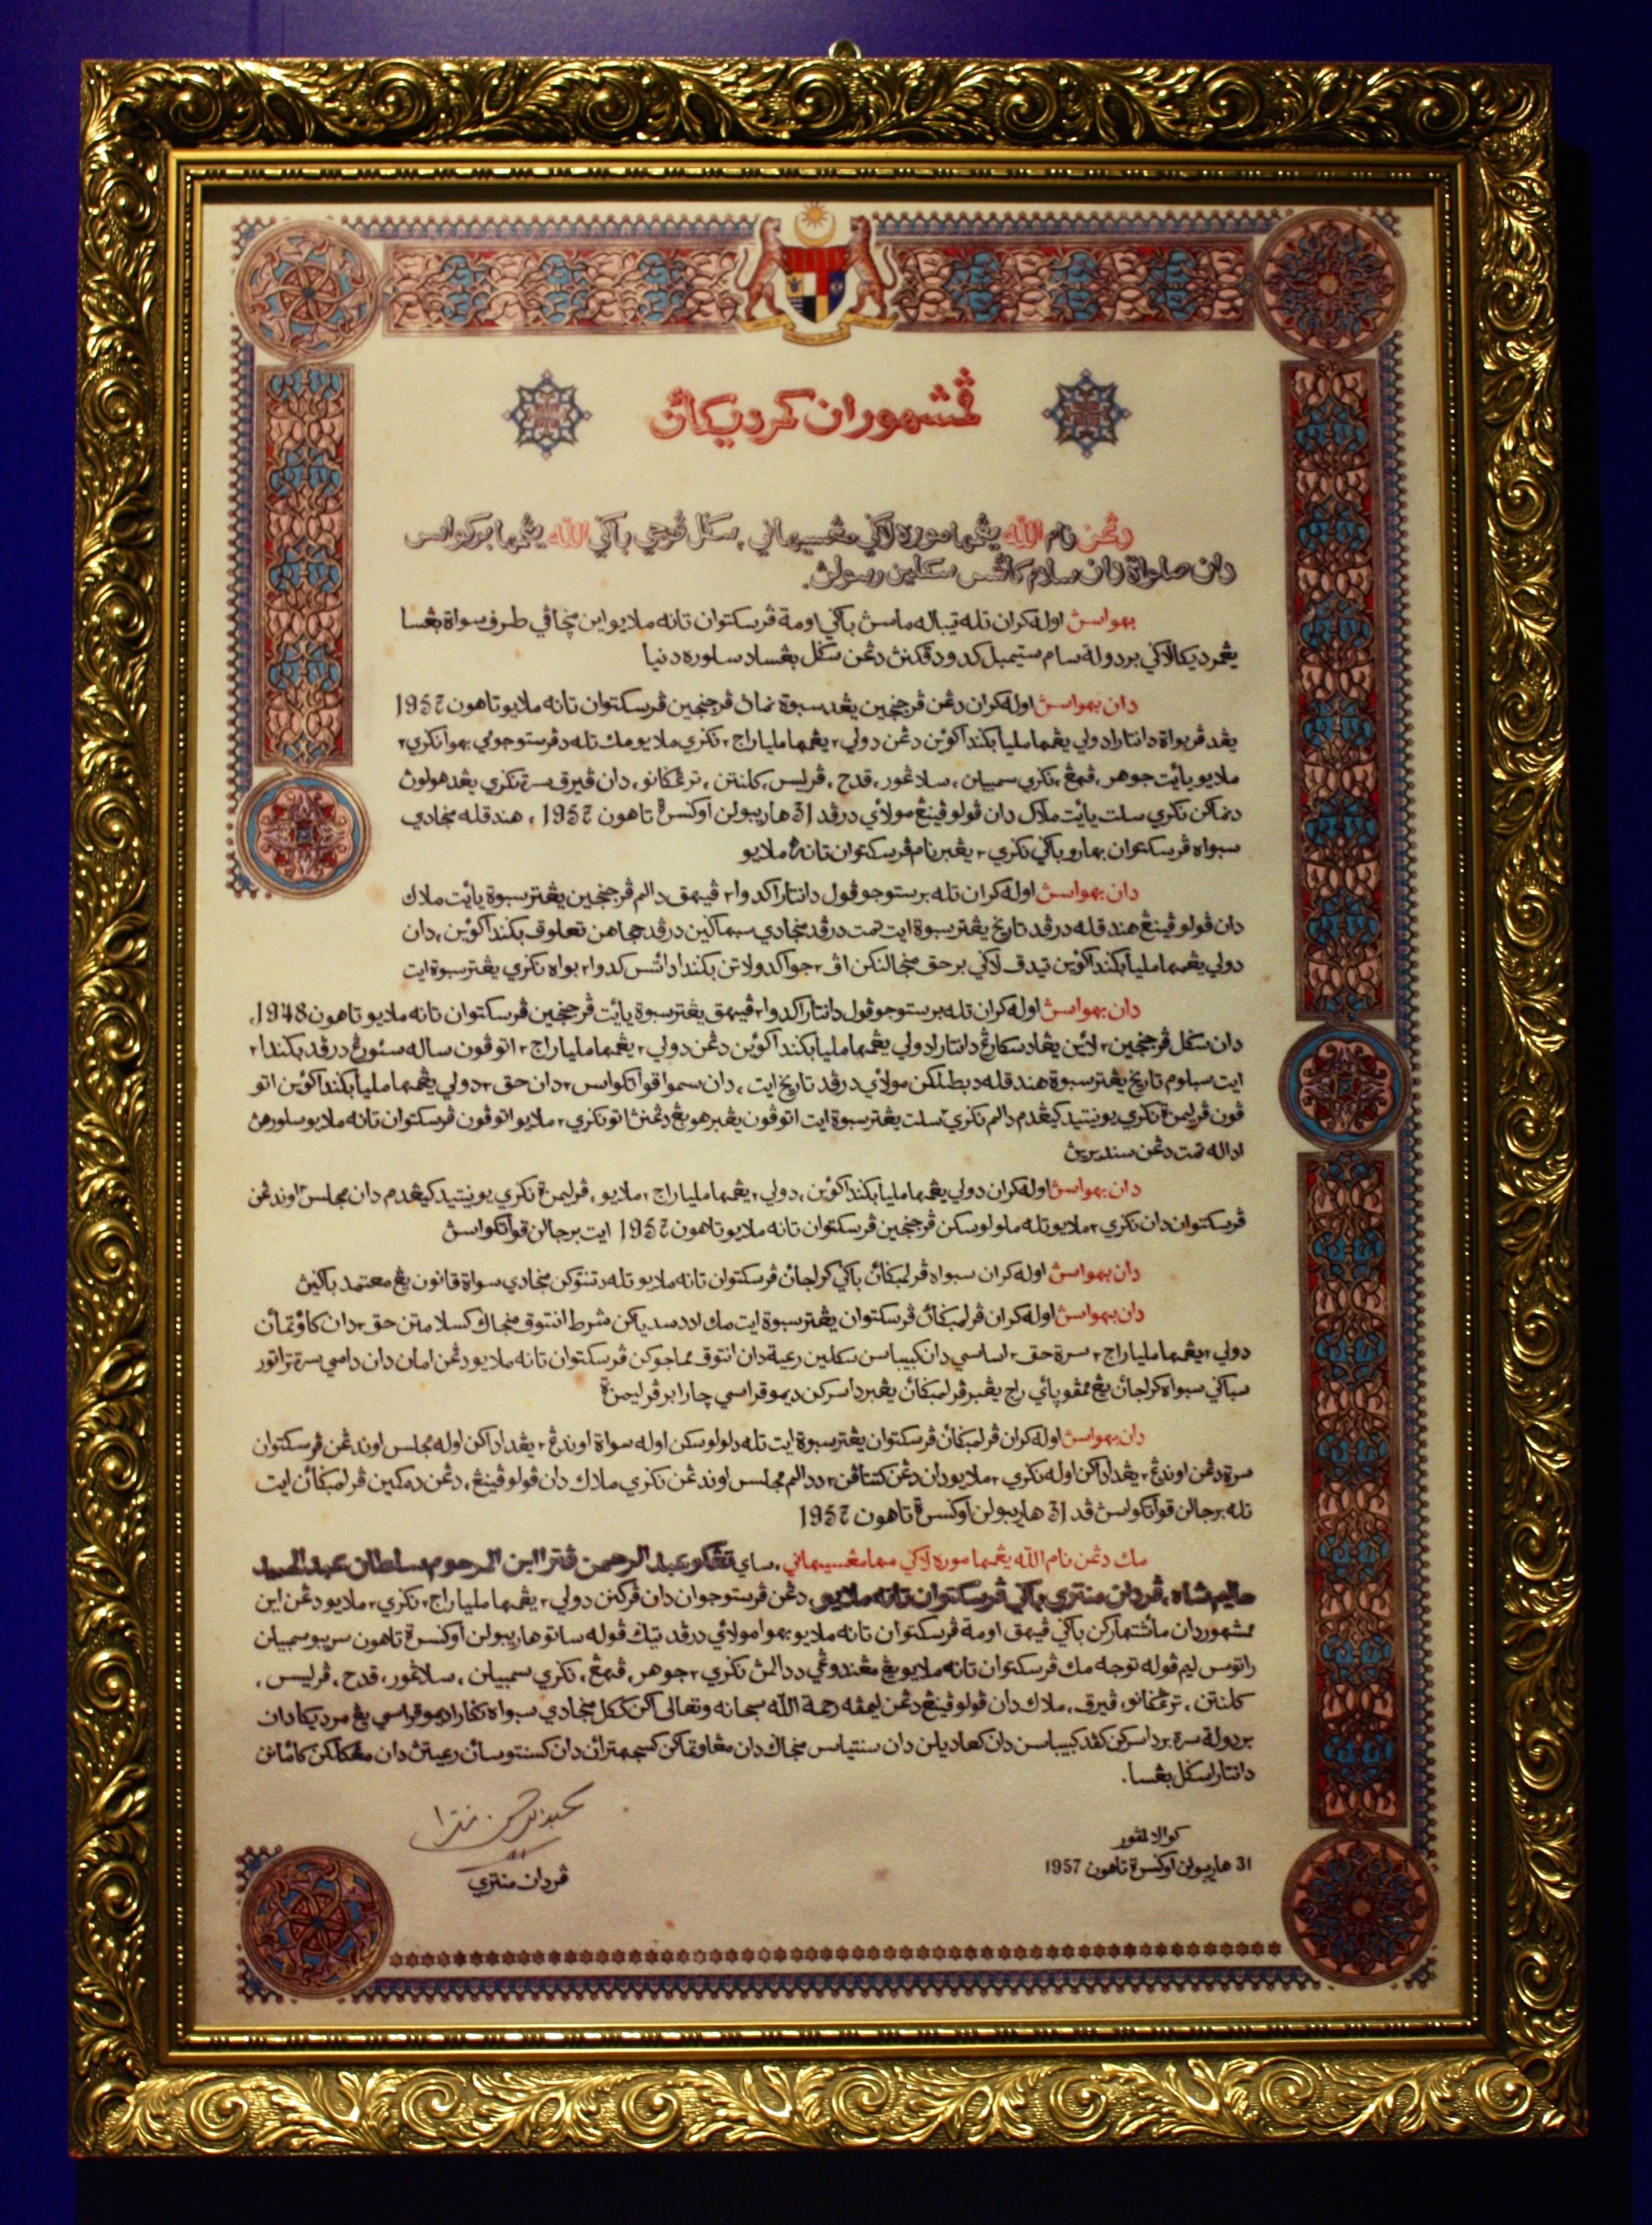 ڤمشهوران كمرديكاءن
دڠن نام الله يڠمها موره لاڬي مڠسيهاني، سڬل ڤوجي باڬي الله يڠمها بركواس
دان صلواة دان سلام كاتس سكلين رسولڽ.
بهواسڽ اوله كران تله تيباله ماسڽ باڬي اومة ڤرسكتوان تانه ملايو اين منچاڤي طرف سواة بڠسا
يڠمرديكا لاڬي بردولة سام ستيمبل كدودقكنڽ دڠن سڬل بڠسا دسلوره دنيا
دان بهواسڽ اوله كران دڠن ڤرجنجين يڠدسبوة نماڽ ڤرجنجين ڤرسكتوان تانه ملايو تاهون 1957
يڠدڤربواة دانتارا دولي يڠمها مليا بڬيندا كوئين دڠن دولي٢ يڠمها مليا راج٢ نڬري ملايو مك تله دڤرستوجوءي بهوا نڬري٢
ملايو يائيت جوهر، ڤهڠ، نڬري سمبيلن، سلاڠور، قدح، ڤرليس، كلنتن، ترڠڬانو، دان ڤيرق سرة نڬري يڠدهولوڽ
دنماكن نڬري سلت يائيت ملاك دان ڤولو ڤينڠ مولاءي درڤد 31 هاريبولن اوڬسة تاهون 1957، هندقله منجادي
سبواه ڤرسكتوان بهارو باڬي نڬري٢ يڠبرنام ڤرسكتوان تانه ملايو
دان بهواسڽ اوله كران تله برستوجو ڤول دانتارا كدوا٢ ڤيهق دالم ڤرجنجين يڠترسبوة يائيت ملاك
دان ڤولو ڤينڠ هندقله درڤد تاريخ يڠترسبوة ايت تمت درڤد منجادي سبهاڬين درڤد جاجاهن تعلوق بڬيندا كوئين، دان
دولي يڠمها مليا بڬيندا كوئين تيدق لاڬي برحق منجالنكن اڤ٢ جوا كدولاتن بڬيندا داتس كدوا٢ بواه نڬري يڠترسبوة ايت
دان بهواسڽ اوله كران تله برستوجو ڤول دانتارا كدوا٢ ڤيهق يڠترسبوة يائيت ڤرجنجين ڤرسكتوان تانه ملايو تاهون 1948،
دان سڬل ڤرجنجين٢ لاءين يڠاد سكارڠ دانتارا دولي يڠمها مليا بڬيندا كوئين دڠن دولي٢ يڠمها مليا راج٢ اتوڤون ساله سئورڠ درڤد بڬيندا٢
ايت سبلوم تاريخ يڠترسبوة هندقله دبطلكن مولاءي درڤد تاريخ ايت، دان سموا قوات كواس٢ دان حق٢ دولي يڠمها مليا بڬيندا كوئين اتو
ڤون ڤرليمن نڬري يونيتيد كيڠدم دالم نڬري٢ سلت يڠترسبوة ايت اتوڤون يڠبرهوبڠ دڠنڽ اتو نڬري٢ ملايو اتوڤون ڤرسكتوان تانه ملايو سلورهڽ
اداله تمت دڠن سنديريڽ
دان بهواسڽ اوله كران دولي يڠمها مليا بڬيندا كوئين، دولي٢ يڠمها مليا راج٢ ملايو، ڤرليمن نڬري يونيتيد كيڠدم دان مجلس٢ اوندڠن
ڤرسكتوان دان نڬري٢ ملايو تله ملولوسكن ڤرجنجين ڤرسكتوان تانه ملايو تاهون 1957 ايت برجالن قوات كواسڽ
دان بهواسڽ اوله كران سبواه ڤرلمباڬاءن باڬي كراجاءن ڤرسكتوان تانه ملايو تله دتنتوكن منجادي سواة قانون يڠ معتمد باڬيڽ
دان بهواسڽ اوله كران ڤرلمباڬاءن ڤرسكتوان يڠترسبوة ايت مك اد دسدياكن شرط انتوق منجاڬ كسلامتن حق٢ دان كاوتماءن
دولي٢ يڠمها مليا راج٢ سرة حق٢ اساسي دان كبيباسن سكلين رعية دان انتوق مماجوكن ڤرسكتوان تانه ملايو دڠن امان دان دامي سرة تراتور
سباڬي سبواه كراجاءن يڠ ممڤوڽاءي راج يڠبرڤرلمباڬاءن يڠبرداسركن ديموقراسي چارا برڤرليمن
دان بهواسڽ اوله كران ڤرلمباڬاءن ڤرسكتوان يڠترسبوة ايت تله دلولوسكن اوله سواة اوندڠ٢ يڠداداكن اوله مجلس اوندڠن ڤرسكتوان
سرة دڠن اوندڠ٢ يڠداداكن اوله نڬري٢ ملايو دان دڠن كتتاڤن٢ ددالم مجلس اوندڠن نڬري ملاك دان ڤولو ڤينڠ، دڠن دمكين ڤرلمباڬاءن ايت
تله برجالن قوات كواسڽ ڤد 31 هاريبولن اوڬسة تاهون 1957
مك دڠن نام الله يڠمها موره لاڬي مها مڠسيهاني، ساي تڠكو عبدالرحمن ڤترا ابن المرحوم سلطان عبدالحميد
حاليم شاه، ڤردان منتري باڬي ڤرسكتوان تانه ملايو، دڠن ڤرستوجوان دان ڤركنن دولي٢ يڠمها مليا راج٢ نڬري٢ ملايو دڠن اين
ممشهوركن دان مڠاشتهاركن باڬي ڤيهق اومة ڤرسكتوان تانه ملايو بهوا مولاءي درڤد تيڬ ڤوله ساتو هاريبولن اوڬسة تاهون سريبو سمبيلن
راتوس ليم ڤوله توجه مك ڤرسكتوان تانه ملايو يڠ مڠندوڠي ددالمڽ نڬري٢ جوهر، ڤهڠ، نڬري سمبيلن، سلاڠور، قدح، ڤرليس،
كلنتن، ترڠڬانو، ڤيرق، ملاك دان ڤولو ڤينڠ دڠن ليمڤه رحمة الله سبحانه وتعالى اكن ككل منجادي سبواه نڬارا ديموقراسي يڠ مرديكا دان
بردولة سرة برداسركن كڤد كبيباسن دان كعاديلن دان سنتياس منجاڬ دان مڠاوتماكن كسجهتراءن دان كسنتوساءن رعيتڽ دان مڠكلكن كامانن
دانتارا سڬل بڠسا.
كوالا لمڤور
31 هاريبولن اوڬسة تاهون 1957
ڤردان منتري